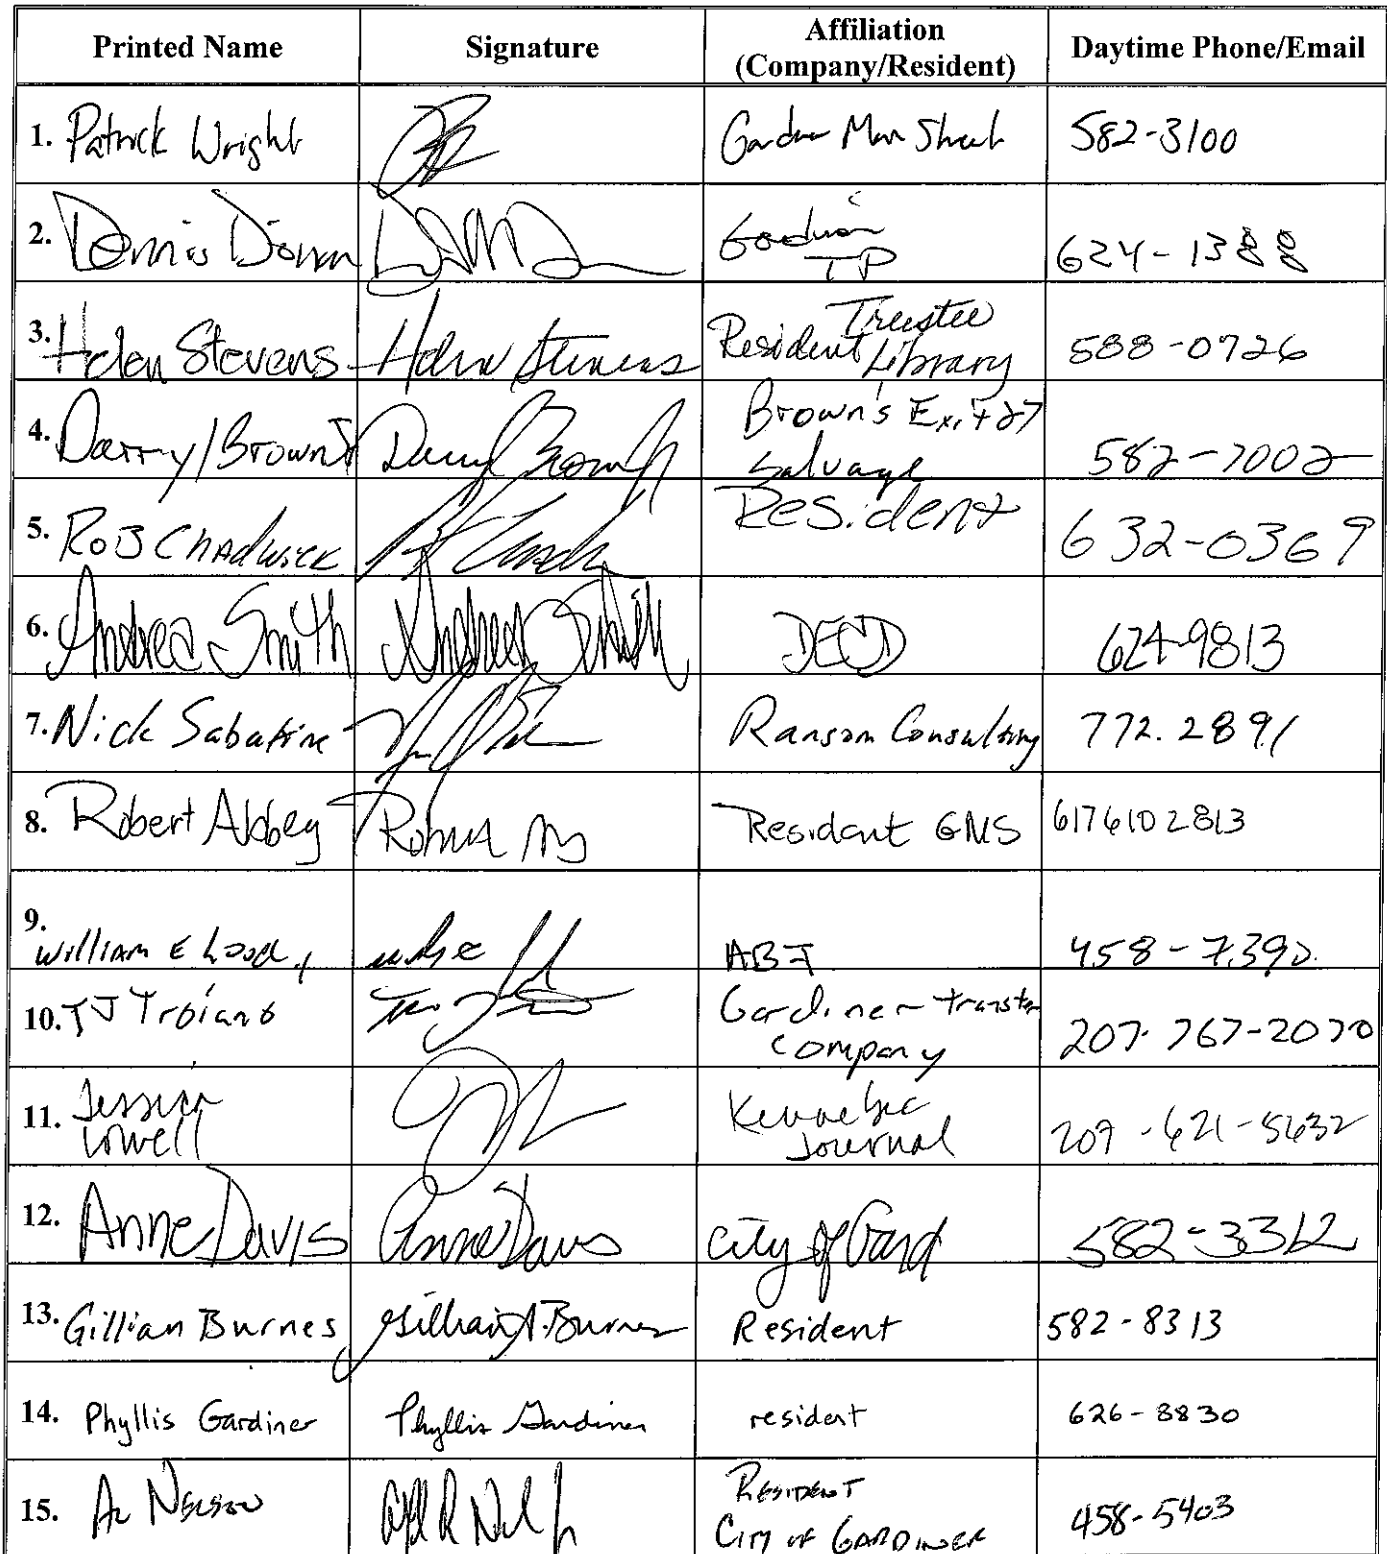 Printed Name Signature Affiliation (Company/Resident) Daytime Phone/Email
1. Patrick Wright Main Street 582-3100
2. Dennis 624-1388
3. Helen Stevens Helen Stevens Resident Trustee Library 588-0726
4. Darryl Brown Jr Darryl Brown Jr Brown's Exit 27 Salvage 582-7002
5. Rob Chadwick Resident 632-0369
6. Andrea Smith Andrea Smith DECD 624-9813
7. Nick Sabatine Ransom Consulting 772.2891
8. Robert Abbey Resident GMS 6176102813
9. William E 458-7390
10. TJ Troiano Gardiner transfer company 207-767-2070
11. Jessica Lowell Kennebec Journal 207-621-5632
12. Anne Davis Anne Davis City of Gard 582-3312
13. Gillian Burnes Gillian A. Burnes Resident 582-8313
14. Phyllis Gardiner Phyllis Gardiner resident 626-8830
15. Al Nelson Resident City of Gardiner 458-5403